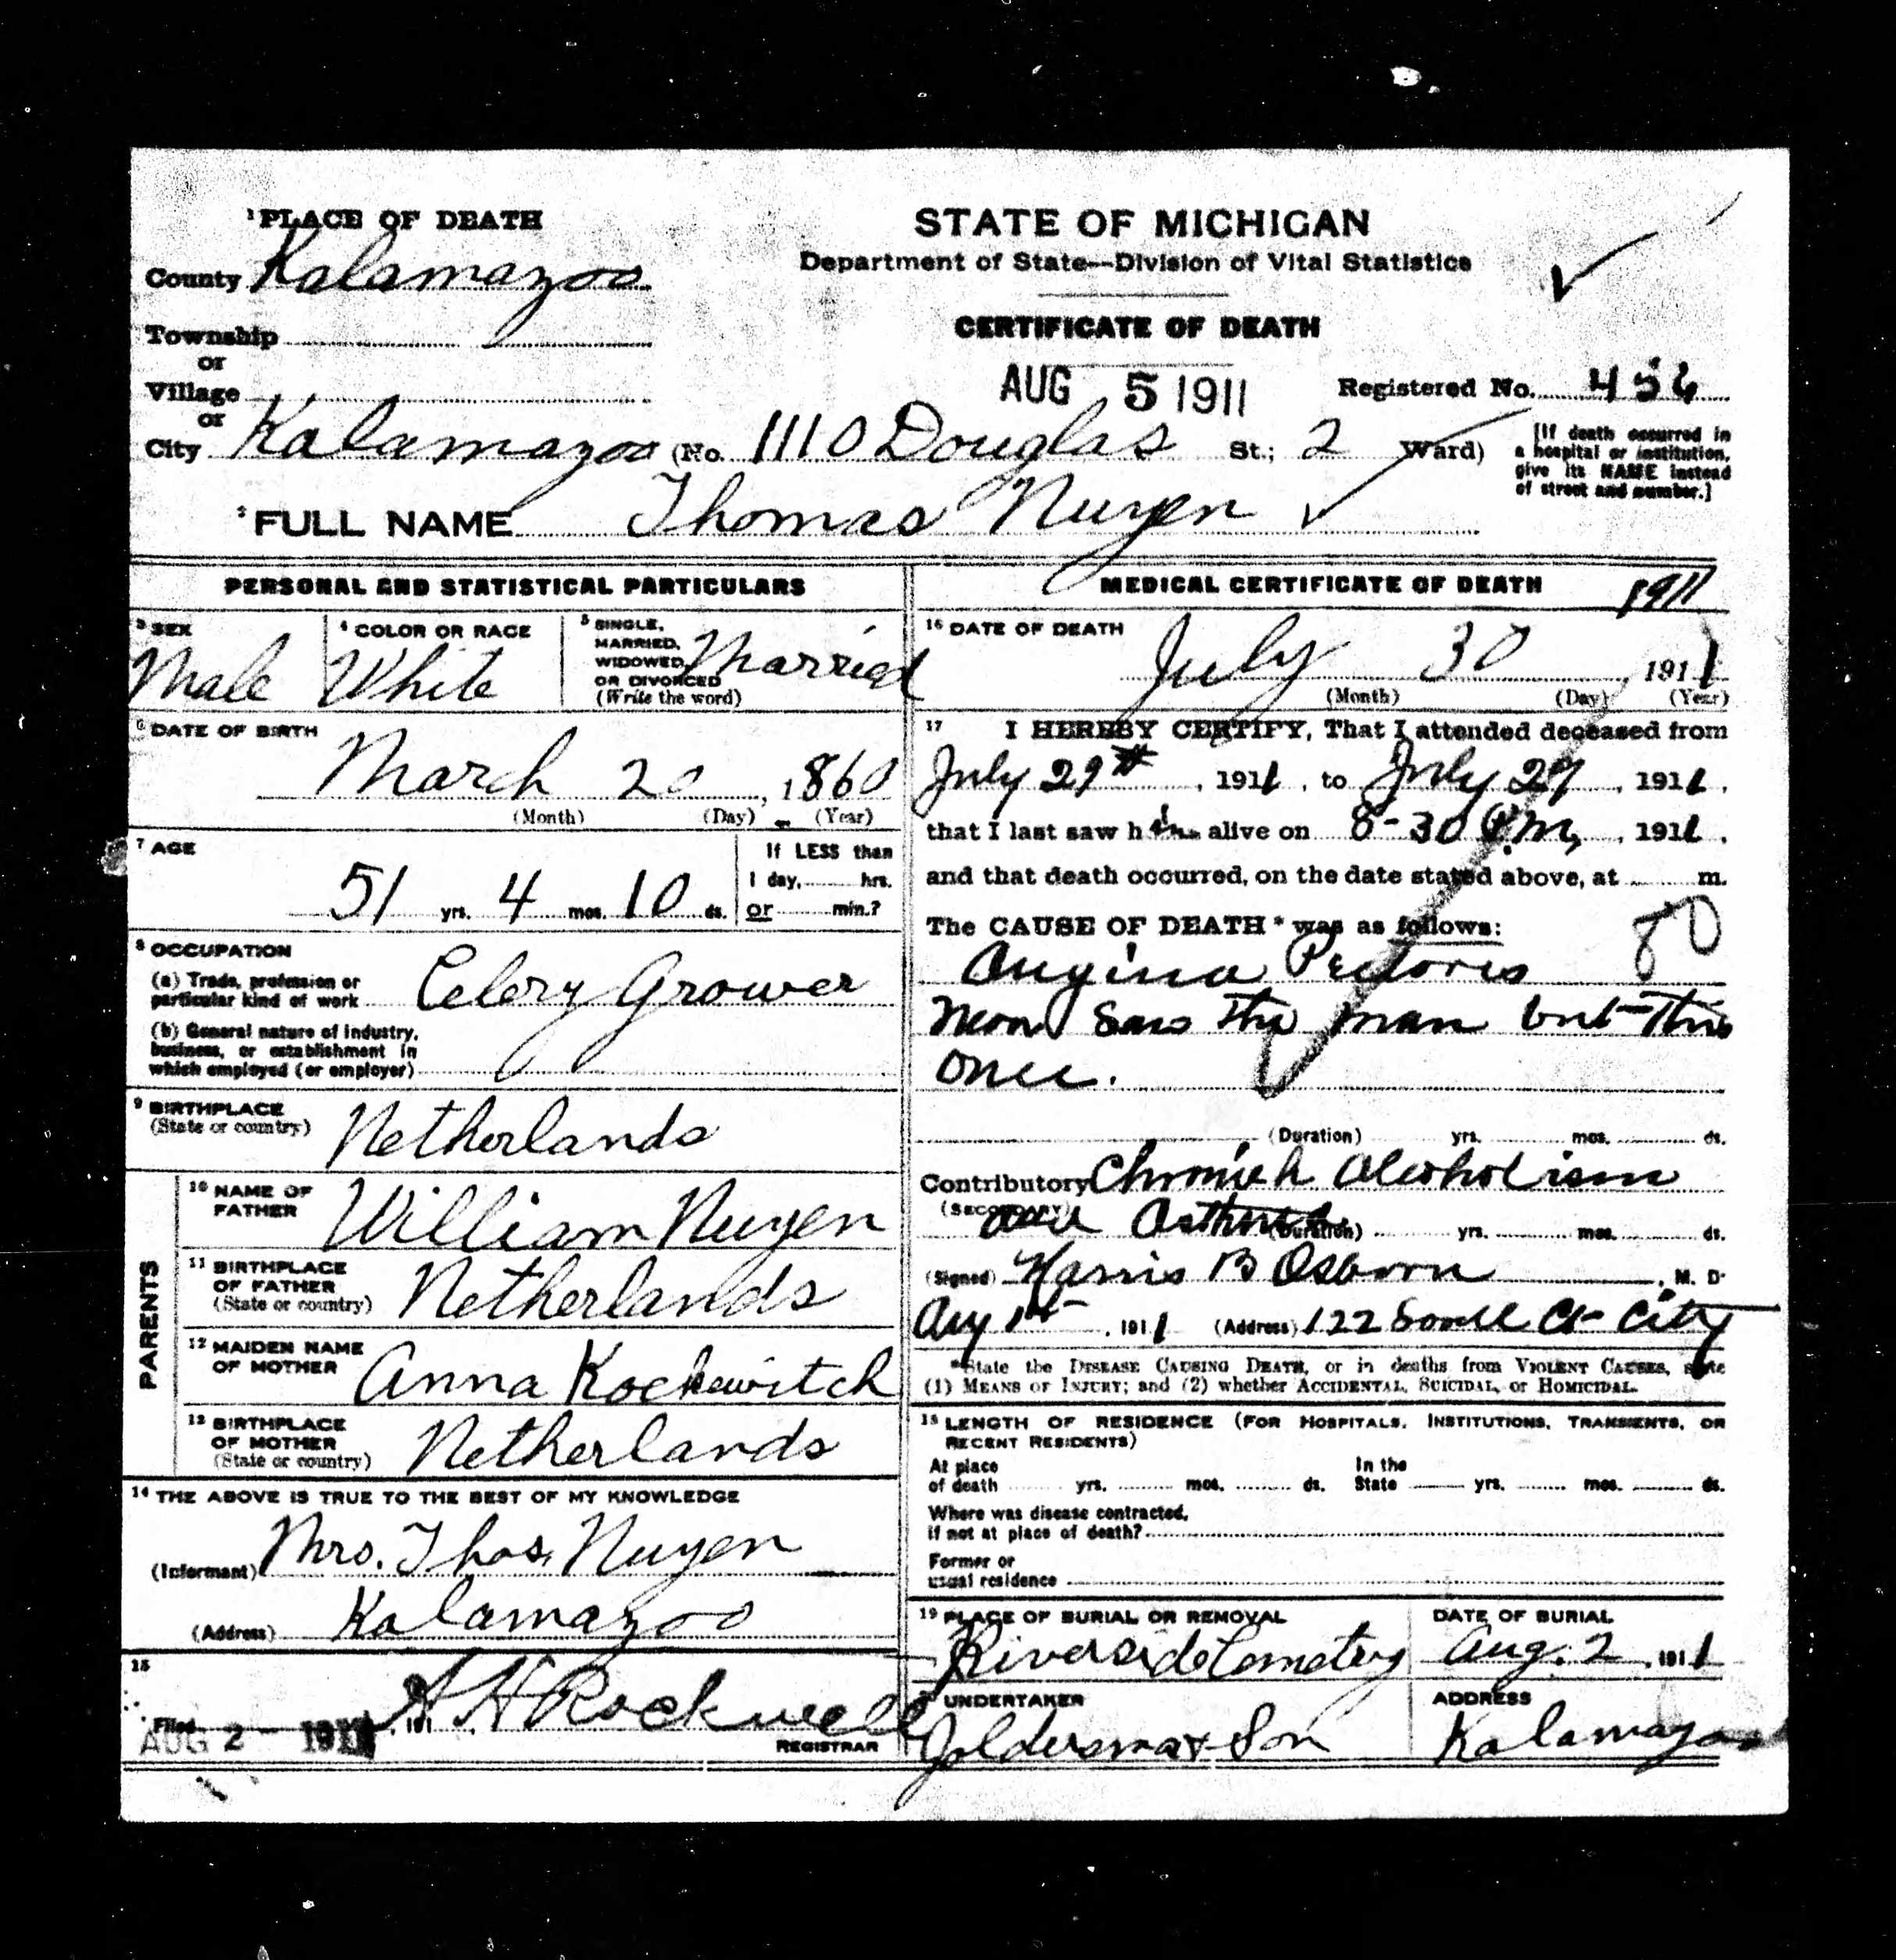 1 PLACE OF DEATH
County Kalamazoo
Township
or
Village
or
City Kalamazoo (No. 1110 Douglas St.; 2 Ward)
STATE OF MICHIGAN
Department of State—Division of Vital Statistics
CERTIFICATE OF DEATH
AUG 5 1911
Registered No. 456
[If death occurred in
a hospital or institution,
give its NAME instead
of street and number.]
2 FULL NAME Thomas Nuyen
PERSONAL AND STATISTICAL PARTICULARS
3 SEX
Male
4 COLOR OR RACE
White
5 SINGLE,
MARRIED,
WIDOWED,
OR DIVORCED
(Write the word)
Married
6 DATE OF BIRTH
March 20, 1860
(Month) (Day) (Year)
7 AGE
51 yrs. 4 mos. 10 ds.
If LESS than
1 day, hrs.
or min.?
8 OCCUPATION
(a) Trade, profession or
particular kind of work Celery Grower
(b) General nature of industry,
business, or establishment in
which employed (or employer)
9 BIRTHPLACE
(State or country) Netherlands
PARENTS
10 NAME OF
FATHER William Nuyen
11 BIRTHPLACE
OF FATHER
(State or country) Netherlands
12 MAIDEN NAME
OF MOTHER Anna Kockewitch
13 BIRTHPLACE
OF MOTHER
(State or country) Netherlands
14 THE ABOVE IS TRUE TO THE BEST OF MY KNOWLEDGE
(Informant) Mrs. Thos. Nuyen
(Address) Kalamazoo
15
Filed AUG 2 - 1911, 191 A H Rockwell
REGISTRAR
MEDICAL CERTIFICATE OF DEATH 1911
16 DATE OF DEATH
July 30, 1911
(Month) (Day) (Year)
17 I HEREBY CERTIFY, That I attended deceased from
July 29th, 1911, to July 29, 1911,
that I last saw him alive on 8-30 P.m, 1911,
and that death occurred, on the date stated above, at m.
The CAUSE OF DEATH* was as follows:
80
Angina Pectoris
Never Saw the man but this
once.
(Duration) yrs. mos. ds.
Contributory Chronich Alcoholism
(SECONDARY)
and Asthma (Duration) yrs. mos. ds.
(Signed) Harris B Osborn, M. D.
Aug 1st, 1911 (Address) 122 South St City
*State the DISEASE CAUSING DEATH, or in deaths from VIOLENT CAUSES, state
(1) MEANS OF INJURY; and (2) whether ACCIDENTAL, SUICIDAL, or HOMICIDAL.
18 LENGTH OF RESIDENCE (FOR HOSPITALS, INSTITUTIONS, TRANSIENTS, OR
RECENT RESIDENTS)
At place
of death yrs. mos. ds.
In the
State yrs. mos. ds.
Where was disease contracted,
if not at place of death?
Former or
usual residence
19 PLACE OF BURIAL OR REMOVAL
Riverside Cemetery
DATE OF BURIAL
Aug. 2, 1911
UNDERTAKER
Joldersma & Son
ADDRESS
Kalamazoo